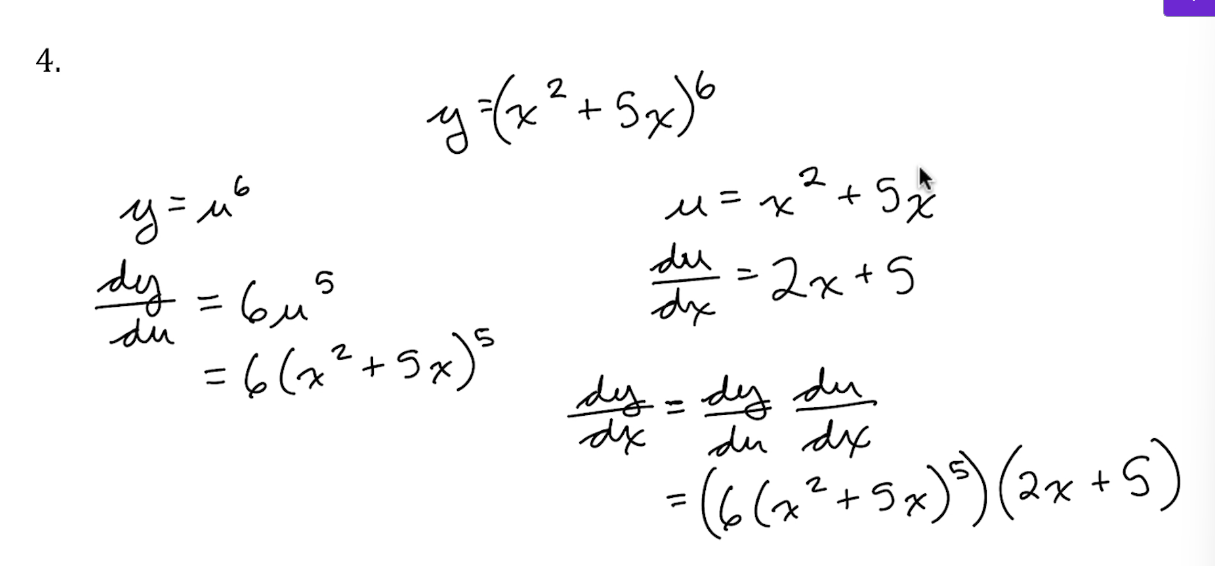 4.
y=(x² + 5x)⁶
y = u⁶
dy/du = 6u⁵
= 6(x² + 5x)⁵
u = x² + 5x
du/dx = 2x + 5
dy/dx = dy/du du/dx
= (6(x² + 5x)⁵)(2x + 5)